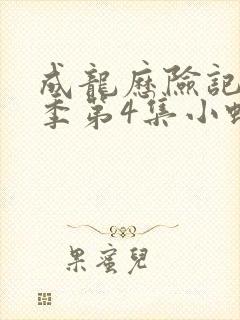 成龍歷險記
季第4集小
果蜜兒